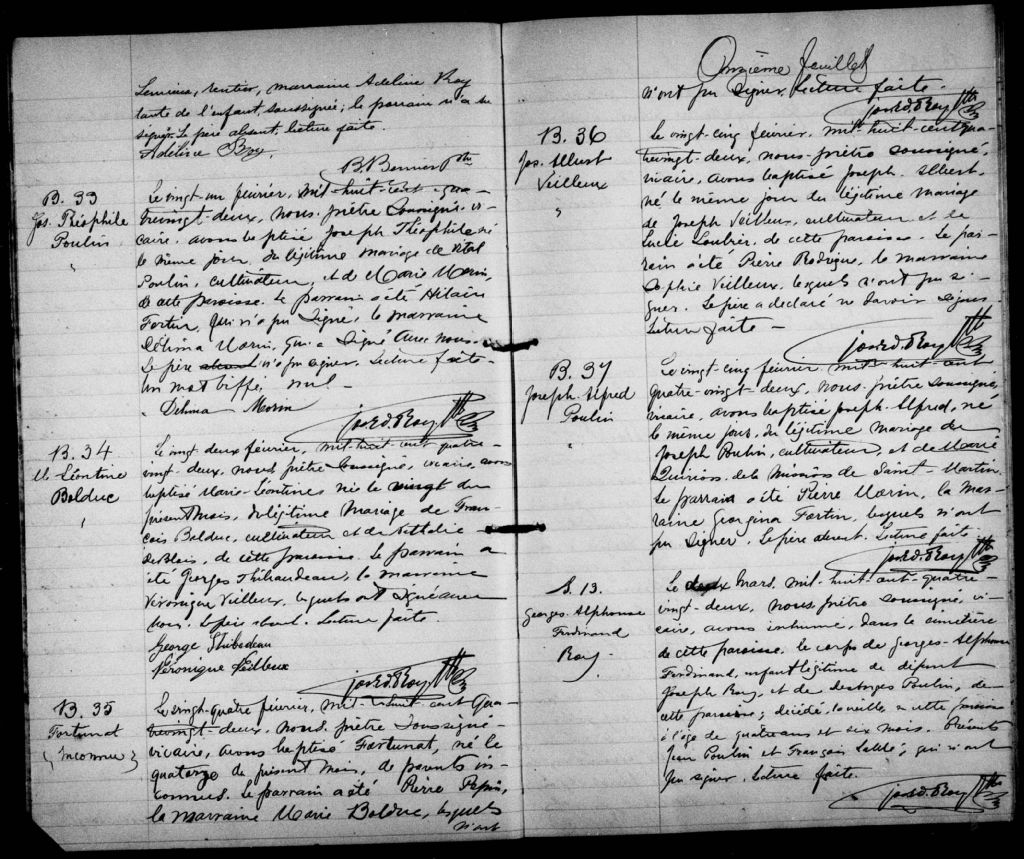 Lemieux, rentier, marraine Adeline Roy
tante de l'enfant, soussignée; le parrain n'a su
signer. Le père absent, lecture faite.
Adéline Roy.
B. Bernier Ptre
B. 33
Jos. Théophile
Poulin
Le vingt-un février, mil-huit-cent-qua-
trevingt-deux, nous, prêtre soussigné, vi-
caire, avons baptisé Joseph Théophile né
le même jour, du légitime mariage de Vital
Poulin, cultivateur, et de Marie Morin,
de cette paroisse. Le parrain a été Hilaire
Fortin, qui n'a pu signer, la marraine
Délima Morin, qui a signé avec nous.
Le père absent n'a pu signer. Lecture faite
Un mot biffé, nul -
Delima Morin
Jos. Ed. Roy Ptre
B. 34
M. Léontine
Bolduc
Le vingt-deux février, mil-huit-cent-quatre-
vingt-deux, nous prêtre soussigné, vicaire, avons
baptisé Marie-Léontine née le vingt du
présent mois, du légitime mariage de Fran-
çois Bolduc, cultivateur et de Nathalie
de cette paroisse. Le parrain a
été Georges Thibaudeau, la marraine
Véronique Veilleux, lesquels ont signé avec
nous. Le père absent. Lecture faite.
George Thibodeau
Véronique Veilleux
Jos. Ed. Roy Ptre
B. 35
Fortunat
(Inconnu)
Le vingt-quatre février, mil-huit-cent-qua-
trevingt-deux, nous prêtre soussigné
vicaire, avons baptisé Fortunat, né le
quatorze du présent mois, de parents in-
connus. Le parrain a été Pierre Pepin,
la marraine Marie Bolduc, lesquels
n'ont
Onzième feuillet
n'ont pu signer. Lecture faite.
Jos. Ed. Roy Ptre
B. 36
Jos. Albert
Veilleux
Le vingt-cinq février, mil-huit-cent-qua-
trevingt-deux, nous prêtre soussigné,
vicaire, avons baptisé Joseph Albert,
né le même jour du légitime mariage
de Joseph Veilleux, cultivateur et de
Lucie Loubier, de cette paroisse. Le par-
rain a été Pierre Rodrigue, la marraine
Sophie Veilleux, lesquels n'ont pu si-
gner. Le père a déclaré ne savoir signer.
Lecture faite -
Jos. Ed. Roy Ptre
B. 37
Joseph Alfred
Poulin
Le vingt-cinq février mil-huit-cent
quatre-vingt-deux, nous prêtre soussigné,
vicaire, avons baptisé Joseph-Alfred, né
le même jour, du légitime mariage de
Joseph Poulin, cultivateur, et de Marie
Quirion, de la mission de Saint-Martin.
Le parrain a été Pierre Morin, la mar-
raine Georgina Fortin, lesquels n'ont
pu signer. Le père absent. Lecture faite.
Jos. Ed. Roy Ptre
S. 13.
Georges-Alphonse
Ferdinand
Roy.
Le deux Mars, mil-huit-cent-quatre-
vingt-deux, nous prêtre soussigné, vi-
caire, avons inhumé, dans le cimetière
de cette paroisse, le corps de Georges-Alphonse
Ferdinand, enfant légitime de défunt
Joseph Roy, et de Desanges Poulin, de
cette paroisse; décédé, la veille, en cette paroisse
à l'âge de quatre ans et six mois. Présents
Jean Poulin et François qui n'ont
pu signer. Lecture faite.
Jos. Ed. Roy Ptre